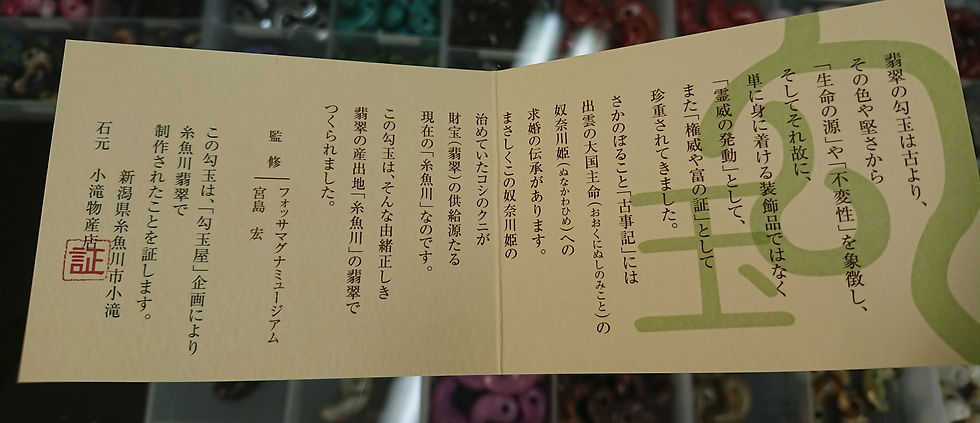 翡翠の勾玉は古より、
その色や堅さから
「生命の源」や「不変性」を象徴し、
そしてそれ故に、
単に身に着ける装飾品ではなく
「霊威の発動」として、
また「権威や富の証」として
珍重されてきました。
さかのぼること「古事記」には
出雲の大国主命(おおくにぬしのみこと)の
奴奈川姫(ぬなかわひめ)への
求婚の伝承があります。
まさしくこの奴奈川姫の
治めていたコシのクニが
財宝(翡翠)の供給源たる
現在の「糸魚川」なのです。
この勾玉は、そんな由緒正しき
翡翠の産出地「糸魚川」の翡翠で
つくられました。
監修―フォッサマグナミュージアム
宮島 宏
この勾玉は、「勾玉屋」企画により
糸魚川翡翠で
制作されたことを証します。
新潟県糸魚川市小滝
石元 小滝物産店
証
玉